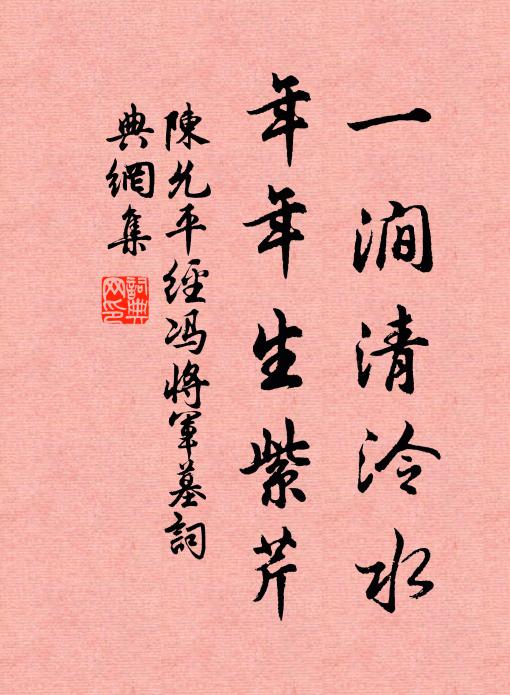 一澗清泠水
年年生紫芹
陳允平經馮將軍墓詞
典網集
詞典網印